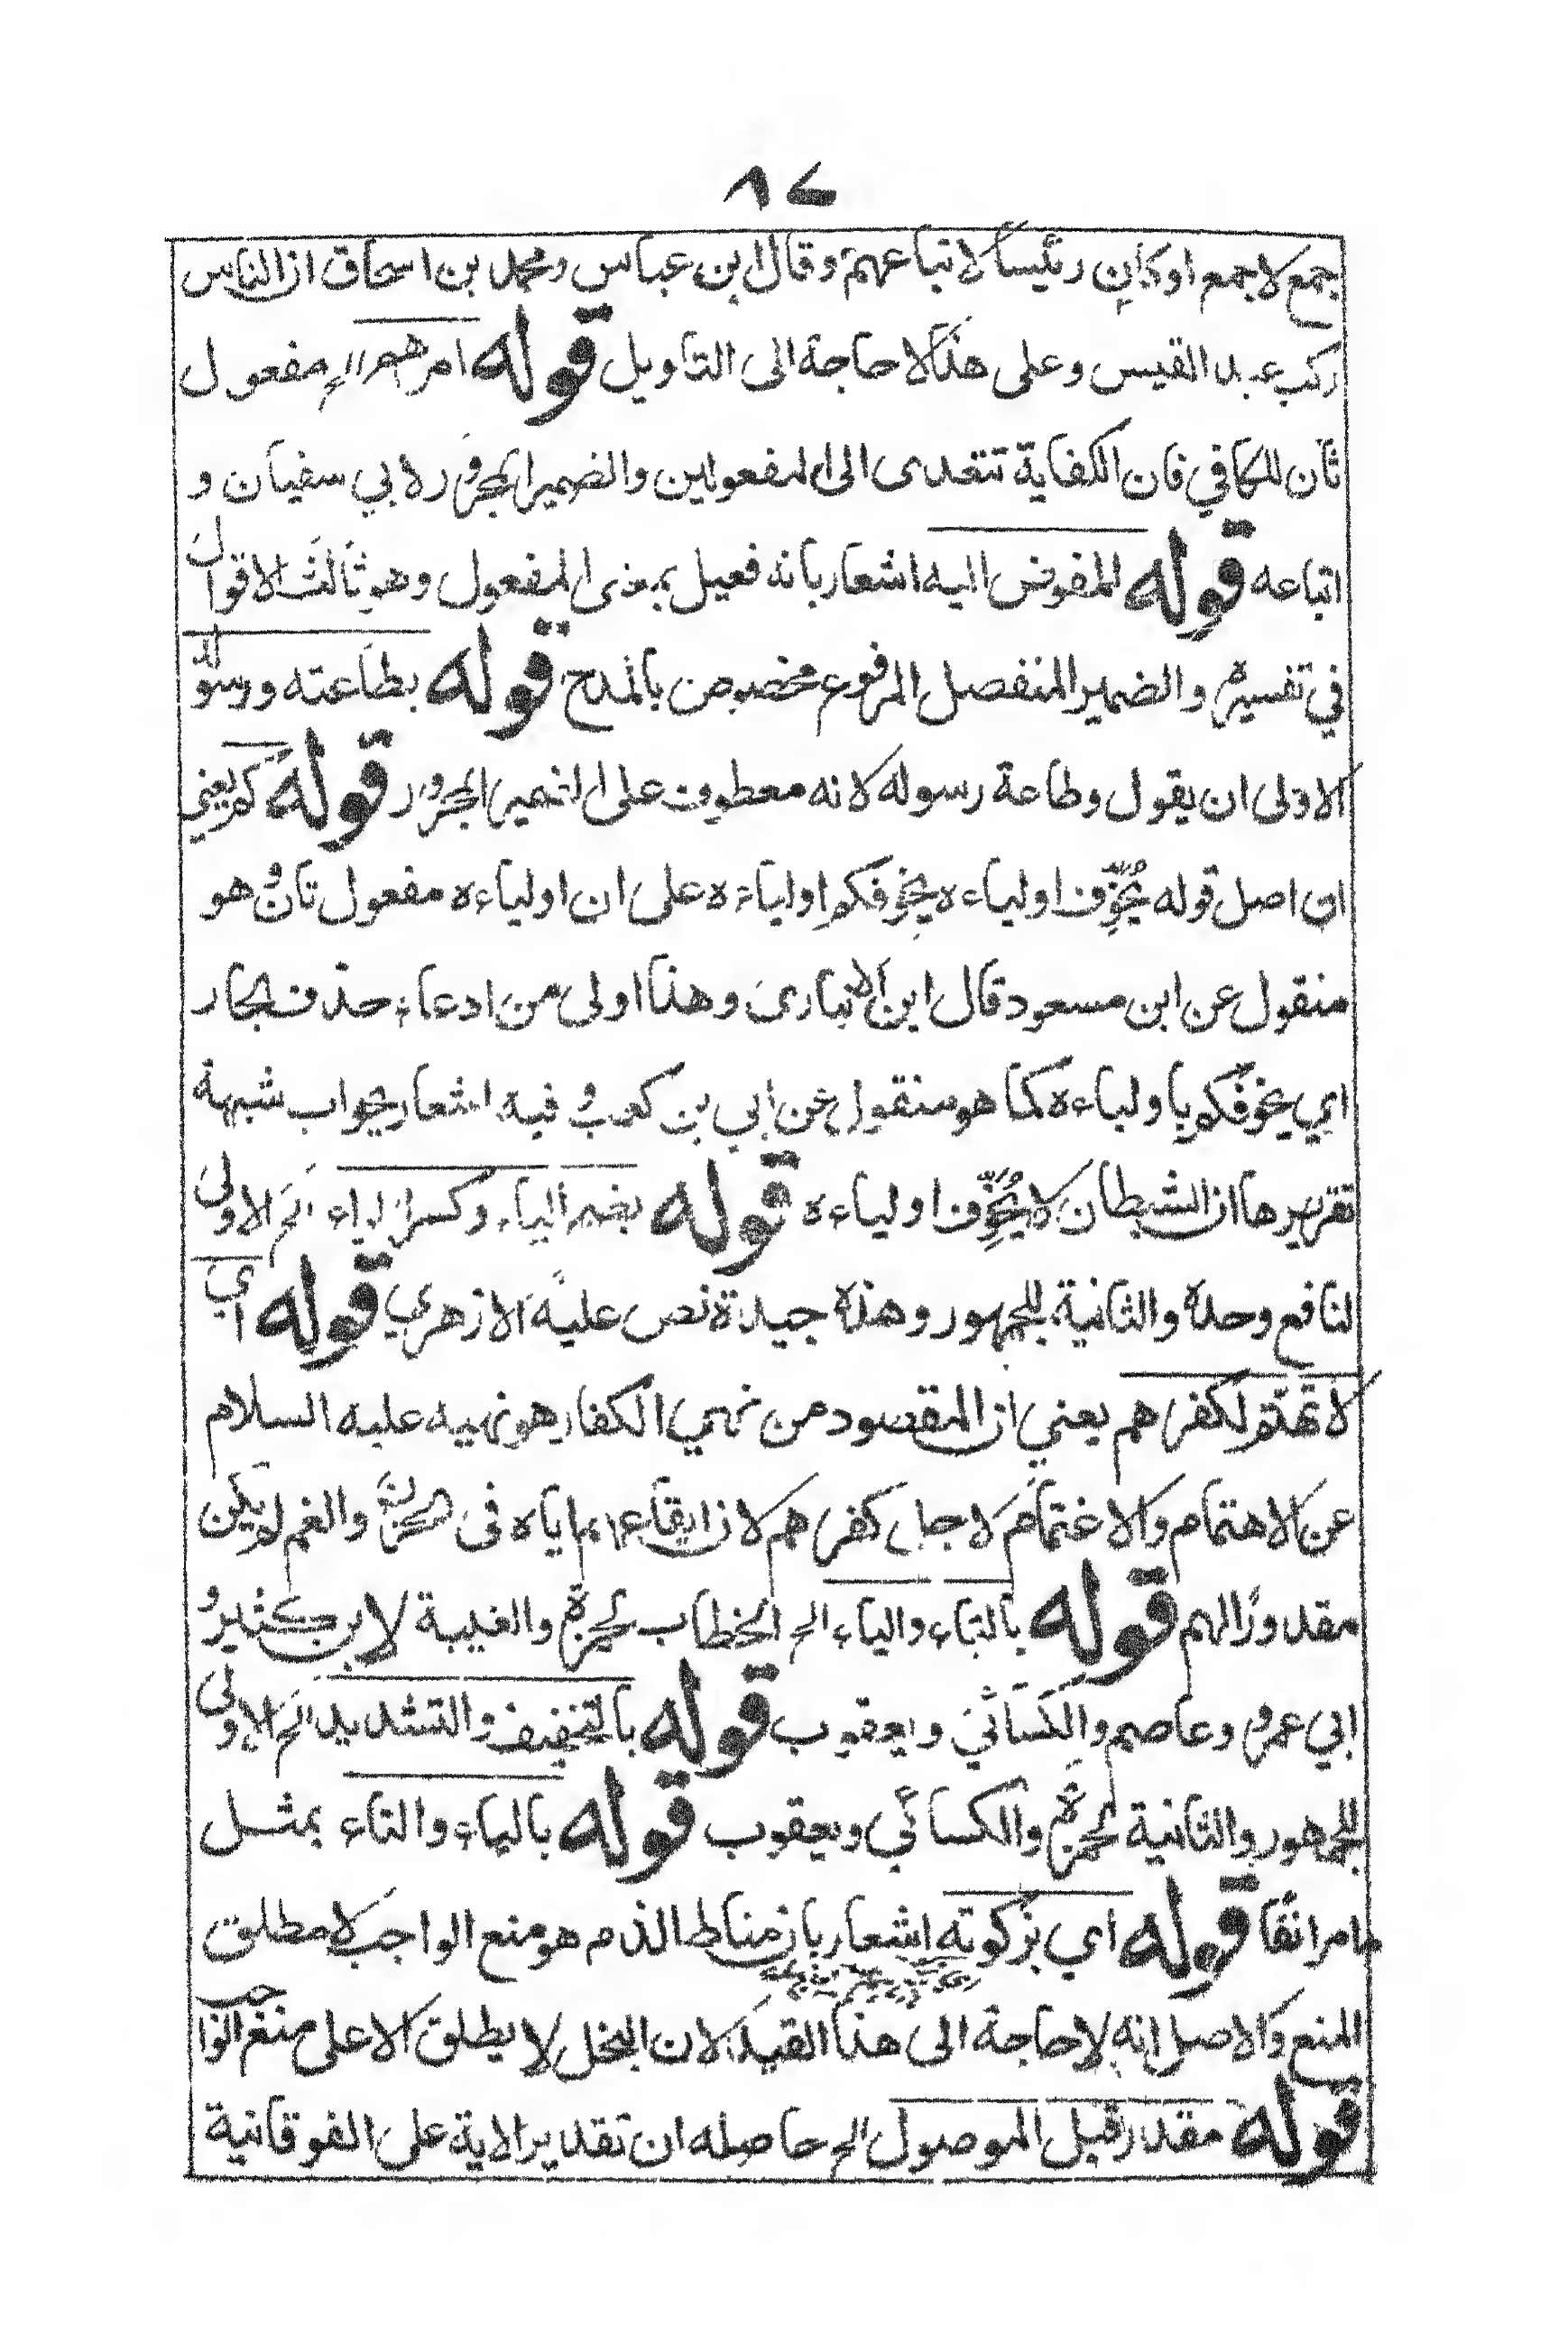 ٨٧
جمع لاجمع اوكان رئيسا لاتباعهم وقال ابن عباس ومحمد بن اسحاق ان الناس
ركب عبد القيس وعلى هذا لاحاجة الى التاويل قوله امرهم الخ مفعول
ثان للكافي فان الكفاية تتعدى الى المفعولين والضمير المجرور لابي سفيان و
اتباعه قوله المفوض اليه اشعار بانه فعيل بمعنى المفعول وهو ثالث الاقوال
في تفسيره والضمير المنفصل المرفوع مخصوص بالمدح قوله بطاعته ورسوله
الاولى ان يقول وطاعة رسوله لانه معطوف على الضمير المجرور قوله كم يعني
ان اصل قوله يُخَوِّف اولياءه يخوفكم اولياءه على ان اولياءه مفعول ثان وهو
منقول عن ابن مسعود قال ابن الانباري وهذا اولى من ادعاء حذف الجار
اي يخوفكم باولياءه كما هو منقول عن ابي بن كعب وفيه اشعار بجواب شبهة
تقريرها ان الشيطان لا يُخَوِّف اولياءه قوله بضم الياء وكسر الزاء الخ الاولى
لنافع وحده والثانية للجمهور وهذه جيدة نص عليه الازهري قوله اي
لا تهتم لكفرهم يعني ان المقصود من نهي الكفار هو نهيه عليه السلام
عن الاهتمام والاغتمام لاجل كفرهم لان ايقاعهم اياه في الحزن والغم لم يكن
مقدورًا لهم قوله بالتاء والياء الخ الخطاب لحمزة والغيبة لابن كثير و
ابي عمرو وعاصم والكسائي ويعقوب قوله بالتخفيف والتشديد الخ الاولى
للجمهور والثانية لحمزة والكسائي ويعقوب قوله بالياء والتاء بمثل
ما مر انفًا قوله اي بزكوته اشعار بان مناط الذم هو منع الواجب لا مطلق
المنع والاصل انه لاحاجة الى هذا القيد لان البخل لا يطلق الا على منع الواجب
قوله مقدر قبل الموصول الخ حاصله ان تقدير الاية على الفوقانية